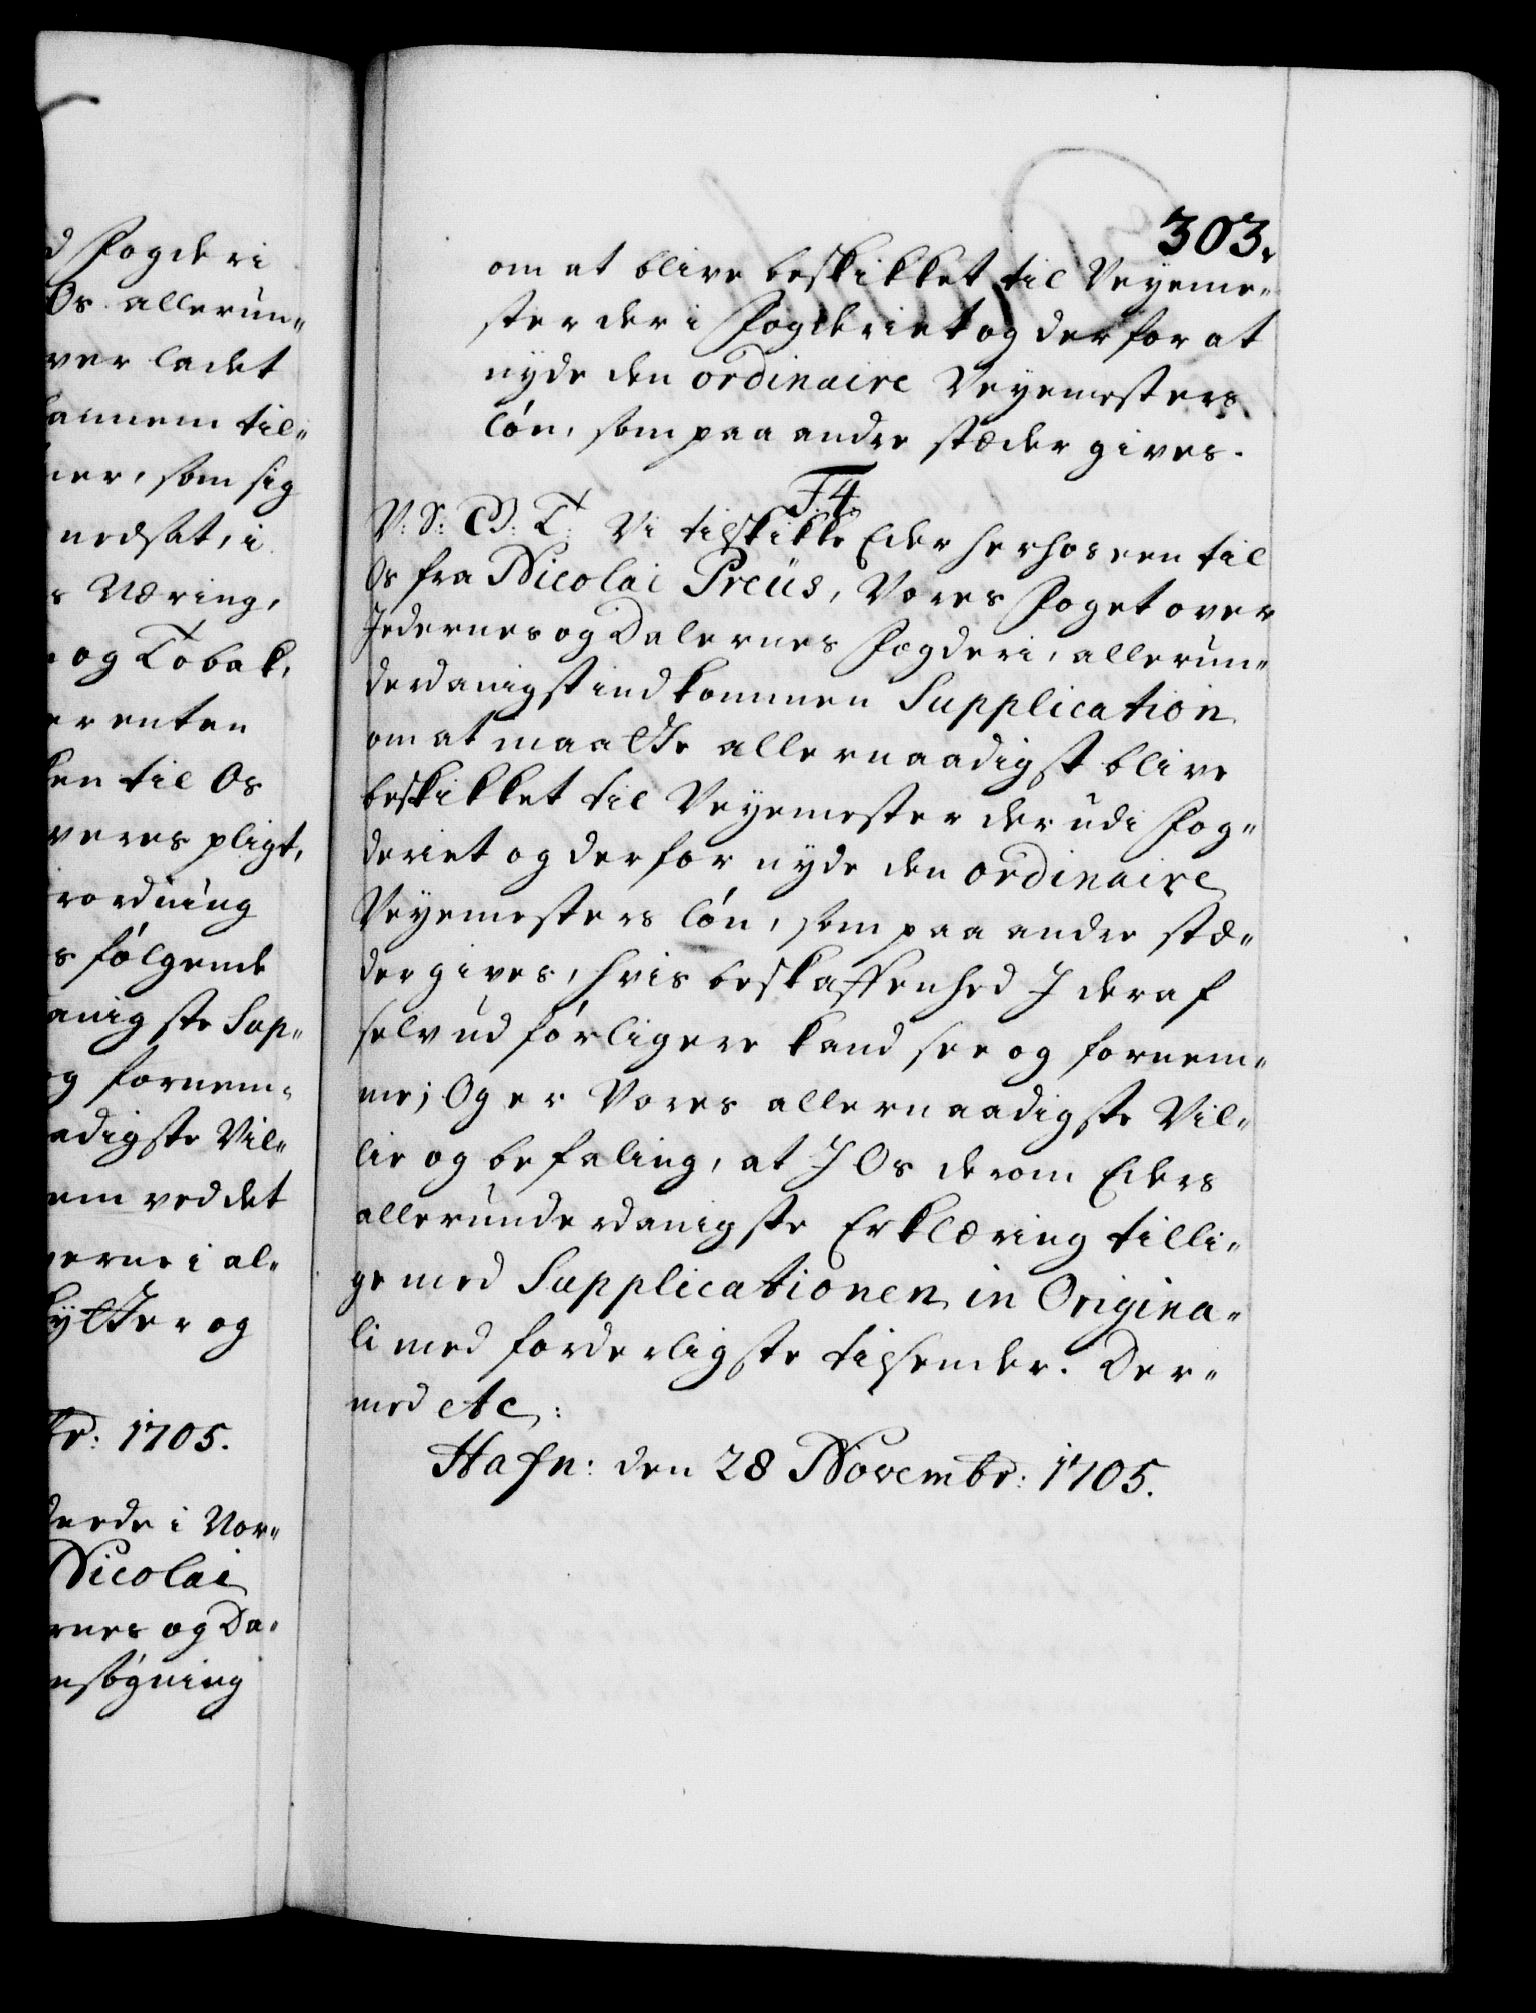 d Fogderi
Os allerun„
ver ladet
hannem til„
ner, som sig
nedsat, i
s Næring,
og Tobak,
er enten
ken til Os
veres pligt,
rordning
s følgende
anigste Sup„
og fornem„
adigste Vil„
em ved det
verne i al„
kytter og
br: 1705.
rede i Nor„
Nicolai
ernes og Da„
nsøgning
303.
om at blive beskikket til Veyeme„
ster der i Fogderiet og derfor at
nyde den ordinaire Veyemesters
løn, som paa andre stæder gives.
F4.
V: S: G: T: Vi tilskikke Eder herhos een til
Os fra Nicolai Preüs, Vores Foget over
Jedernes og Dalernes Fogderi, allerun„
derdanigst indkommen Supplication
om at maatte allernaadigst blive
beskikket til Veyemester der udi Fog„
deriet og derfor nyde den ordinaire
Veyemesters løn, som paa andre stæ„
der gives, hvis beskaffenhed I deraf
selv udførligere kand see og fornem„
me; Og er Vores allernaadigste Vil„
lie og befaling, at I Os derom Eders
allerunderdanigste Erklæring tilli„
ge med Supplicationen in Origina„
li med forderligste tilsender. Der„
med etc:
Hafn: den 28 Novembr: 1705.